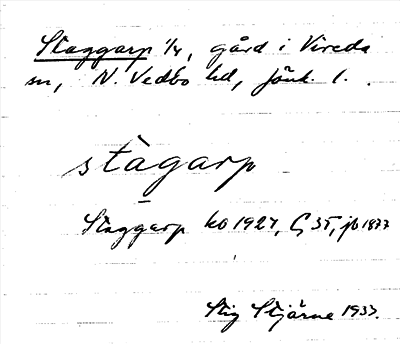 Staggarp 1/4, gård i Vireda
sn, N. Vedbo hd, Jönk. l.
stàgarp
Staggarp ko 1927, G 35, jb 1877
Stig Stjärne 1937.